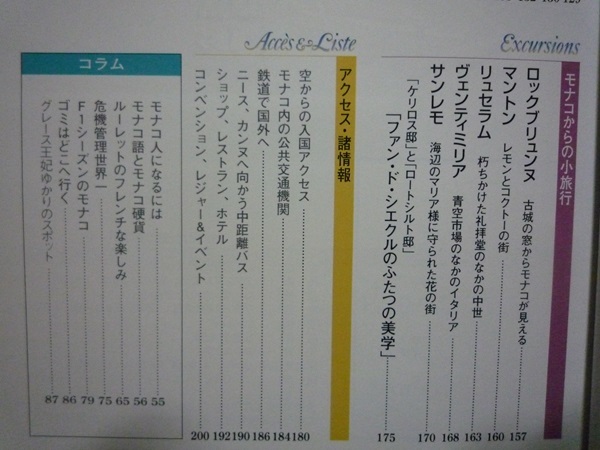 Excursions
モナコからの小旅行
ロックブリュンヌ 古城の窓からモナコが見える 157
マントン レモンとコクトーの街 160
リュセラム 朽ちかけた礼拝堂のなかの中世 163
ヴェンティミリア 青空市場のなかのイタリア 168
サンレモ 海辺のマリア様に守られた花の街 170
「ケリロス邸」と「ロートシルト邸」
「ファン・ド・シエクルのふたつの美学」 175
Accès & Liste
アクセス・諸情報
空からの入国アクセス 180
モナコ内の公共交通機関 184
鉄道で国外へ 186
ニース、カンヌへ向かう中距離バス 190
ショップ、レストラン、ホテル 192
コンベンション、レジャー&イベント 200
コラム
モナコ人になるには 55
モナコ語とモナコ硬貨 56
ルーレットのフレンチな楽しみ 65
危機管理世界一 75
F1シーズンのモナコ 79
ゴミはどこへ行く 86
グレース王妃ゆかりのスポット 87